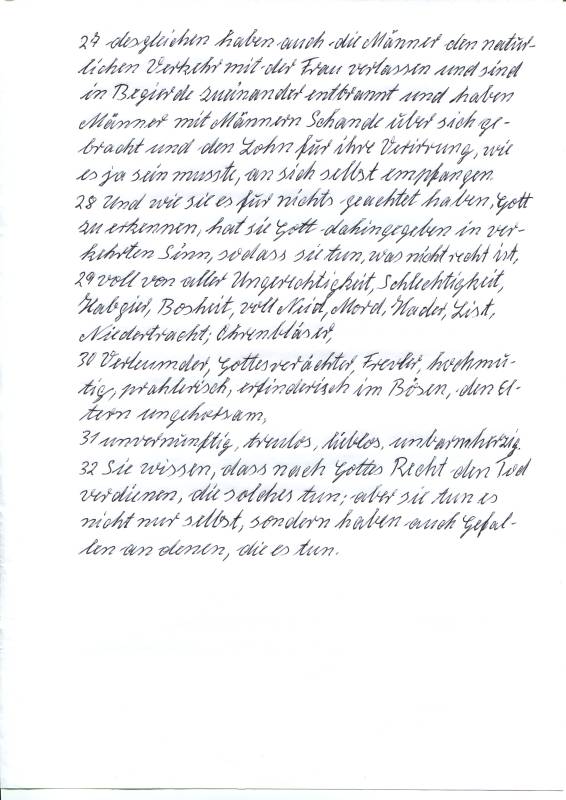 27 desgleichen haben auch die Männer den natür-
lichen Verkehr mit der Frau verlassen und sind
in Begierde zueinander entbrannt und haben
Männer mit Männern Schande über sich ge-
bracht und den Lohn für ihre Verirrung, wie
es ja sein musste, an sich selbst empfangen.
28 Und wie sie es für nichts geachtet haben, Gott
zu erkennen, hat sie Gott dahingegeben in ver-
kehrten Sinn, sodass sie tun, was nicht recht ist,
29 voll von aller Ungerechtigkeit, Schlechtigkeit,
Habgier, Bosheit, voll Neid, Mord, Hader, List,
Niedertracht; Ohrenbläser,
30 Verleumder, Gottesverächter, Frevler, hochmü-
tig, prahlerisch, erfinderisch im Bösen, den El-
tern ungehorsam,
31 unvernünftig, treulos, lieblos, unbarmherzig.
32 Sie wissen, dass nach Gottes Recht den Tod
verdienen, die solches tun; aber sie tun es
nicht nur selbst, sondern haben auch Gefal-
len an denen, die es tun.